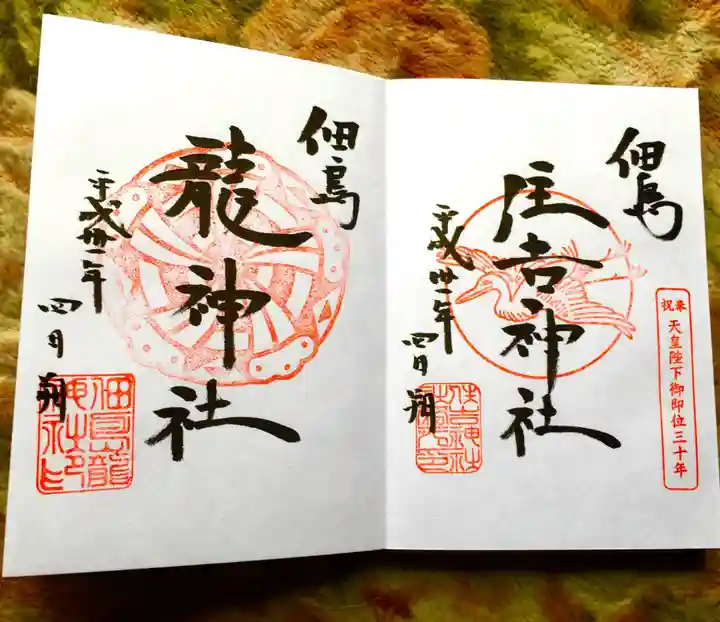 佃島
住吉神社
平成卅一年
四月朔
奉祝 天皇陛下御即位三十年
佃島
龍神社
平成卅一年
四月朔
佃島龍神社印